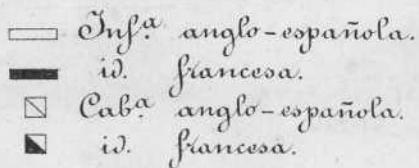 Inf.ª anglo-española.
id. francesa.
Cab.ª anglo-española.
id. francesa.